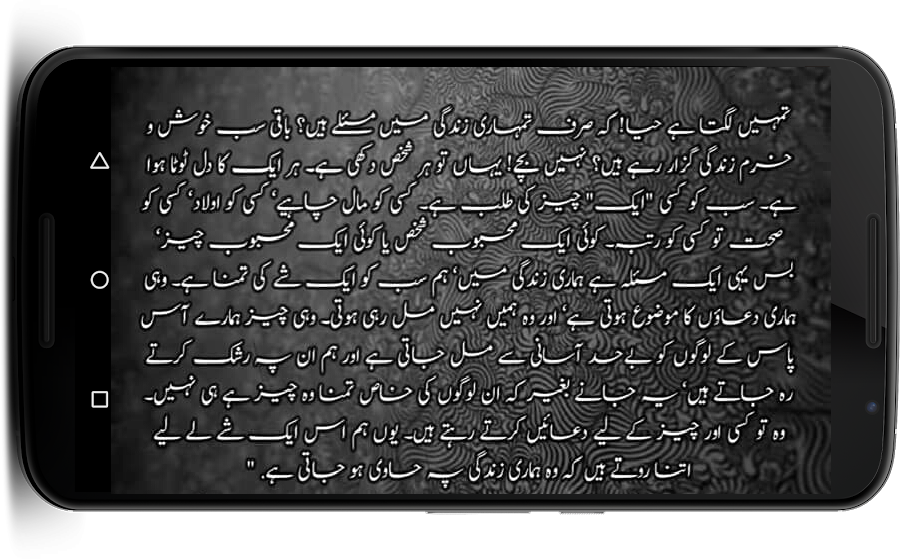 تمہیں لگتا ہے حیا! کہ صرف تمہاری زندگی میں مسئلے ہیں؟ باقی سب خوش و
خرم زندگی گزار رہے ہیں؟ نہیں بچے! یہاں تو ہر شخص دکھی ہے۔ ہر ایک کا دل ٹوٹا ہوا
ہے۔ سب کو کسی "ایک" چیز کی طلب ہے۔ کسی کو مال چاہیے‘ کسی کو اولاد‘ کسی کو
صحت تو کسی کو رتبہ۔ کوئی ایک محبوب شخص یا کوئی ایک محبوب چیز‘
بس یہی ایک مسئلہ ہے ہماری زندگی میں‘ ہم سب کو ایک شے کی تمنا ہے۔ وہی
ہماری دعاؤں کا موضوع ہوتی ہے‘ اور وہ ہمیں نہیں مل رہی ہوتی۔ وہی چیز ہمارے آس
پاس کے لوگوں کو بے حد آسانی سے مل جاتی ہے اور ہم ان پہ رشک کرتے
رہ جاتے ہیں‘ یہ جانے بغیر کہ ان لوگوں کی خاص تمنا وہ چیز ہے ہی نہیں۔
وہ تو کسی اور چیز کے لیے دعائیں کرتے رہتے ہیں۔ یوں ہم اس ایک شے لے لیے
اتنا روتے ہیں کہ وہ ہماری زندگی پہ حاوی ہو جاتی ہے. "